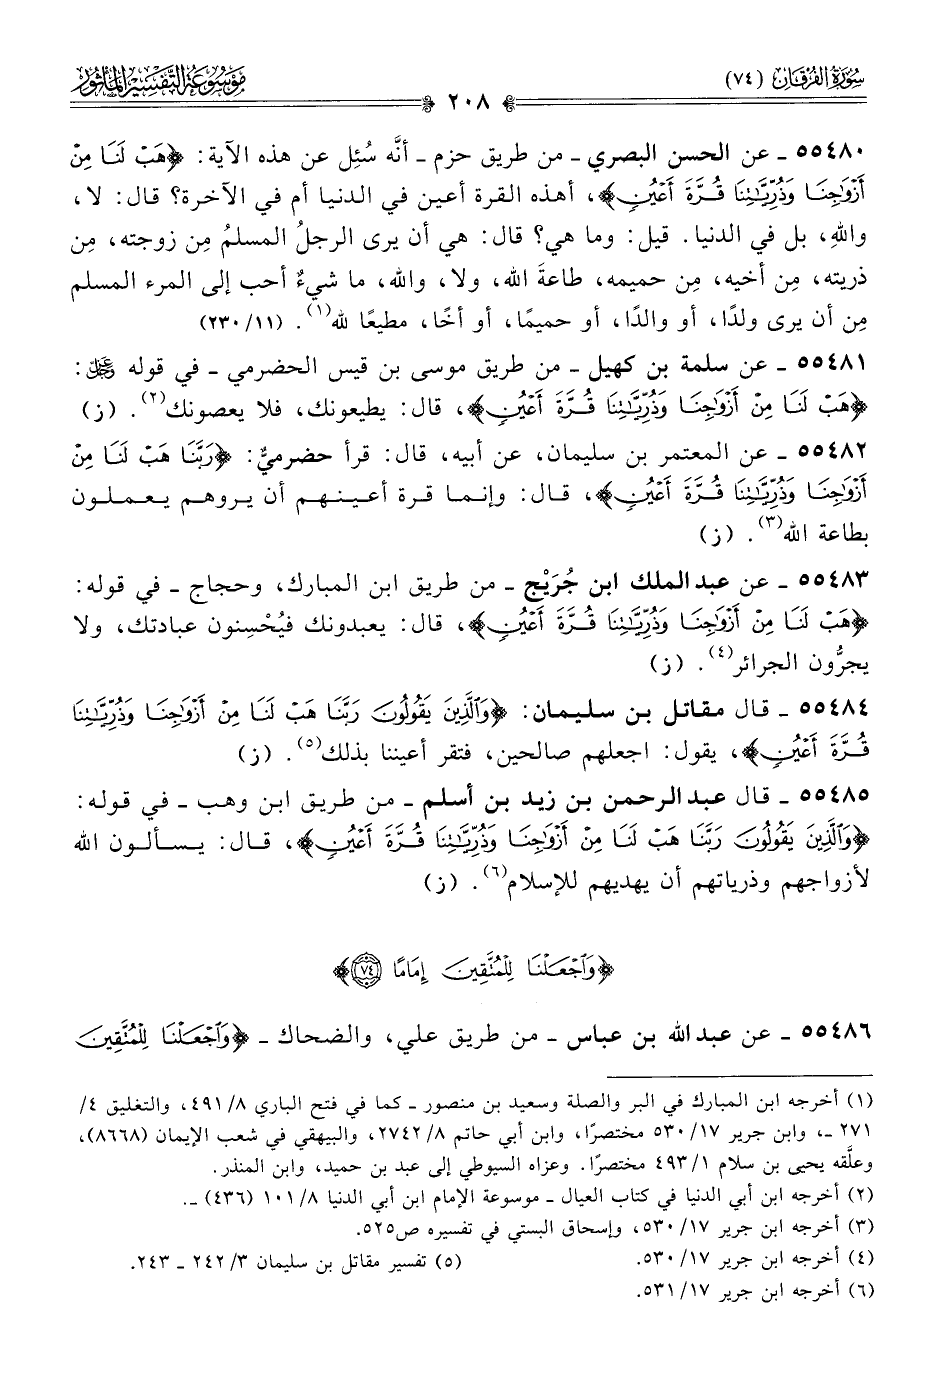 سُورَةُ الفُرْقَانِ (٧٤)
مَوْسُوعَةُ التَّفْسِيرِ المَأْثُورِ
٢٠٨
٥٥٤٨٠ ـ عن الحسن البصري ـ من طريق حزم ـ أنَّه سُئِل عن هذه الآية: ﴿هَبْ لَنَا مِنْ
أَزْوَٰجِنَا وَذُرِّيَّٰتِنَا قُرَّةَ أَعْيُنٍ﴾، أهذه القرة أعين في الدنيا أم في الآخرة؟ قال: لا،
واللهِ، بل في الدنيا. قيل: وما هي؟ قال: هي أن يرى الرجلُ المسلمُ مِن زوجته، مِن
ذريته، مِن أخيه، مِن حميمه، طاعةَ الله، ولا، والله، ما شيءٌ أحب إلى المرء المسلم
مِن أن يرى ولدًا، أو والدًا، أو حميمًا، أو أخًا، مطيعًا لله(١). (٢٣٠/١١)
٥٥٤٨١ ـ عن سلمة بن كهيل ـ من طريق موسى بن قيس الحضرمي ـ في قوله ﷿:
﴿هَبْ لَنَا مِنْ أَزْوَٰجِنَا وَذُرِّيَّٰتِنَا قُرَّةَ أَعْيُنٍ﴾، قال: يطيعونك، فلا يعصونك(٢). (ز)
٥٥٤٨٢ ـ عن المعتمر بن سليمان، عن أبيه، قال: قرأ حضرميٌّ: ﴿رَبَّنَا هَبْ لَنَا مِنْ
أَزْوَٰجِنَا وَذُرِّيَّٰتِنَا قُرَّةَ أَعْيُنٍ﴾، قال: وإنما قرة أعينهم أن يروهم يعملون
بطاعة الله(٣). (ز)
٥٥٤٨٣ ـ عن عبد الملك ابن جُرَيْج ـ من طريق ابن المبارك، وحجاج ـ في قوله:
﴿هَبْ لَنَا مِنْ أَزْوَٰجِنَا وَذُرِّيَّٰتِنَا قُرَّةَ أَعْيُنٍ﴾، قال: يعبدونك فيُحْسِنون عبادتك، ولا
يجرُّون الجرائر(٤). (ز)
٥٥٤٨٤ ـ قال مقاتل بن سليمان: ﴿وَٱلَّذِينَ يَقُولُونَ رَبَّنَا هَبْ لَنَا مِنْ أَزْوَٰجِنَا وَذُرِّيَّٰتِنَا
قُرَّةَ أَعْيُنٍ﴾، يقول: اجعلهم صالحين، فتقر أعيننا بذلك(٥). (ز)
٥٥٤٨٥ ـ قال عبد الرحمن بن زيد بن أسلم ـ من طريق ابن وهب ـ في قوله:
﴿وَٱلَّذِينَ يَقُولُونَ رَبَّنَا هَبْ لَنَا مِنْ أَزْوَٰجِنَا وَذُرِّيَّٰتِنَا قُرَّةَ أَعْيُنٍ﴾، قال: يسألون الله
لأزواجهم وذرياتهم أن يهديهم للإسلام(٦). (ز)
﴿وَٱجْعَلْنَا لِلْمُتَّقِينَ إِمَامًا ٧٤﴾
٥٥٤٨٦ ـ عن عبد الله بن عباس ـ من طريق علي، والضحاك ـ ﴿وَٱجْعَلْنَا لِلْمُتَّقِينَ
(١) أخرجه ابن المبارك في البر والصلة وسعيد بن منصور ـ كما في فتح الباري ٨/ ٤٩١، والتغليق ٤/
٢٧١ ـ، وابن جرير ١٧/ ٥٣٠ مختصرًا، وابن أبي حاتم ٨/ ٢٧٤٢، والبيهقي في شعب الإيمان (٨٦٦٨)،
وعلَّقه يحيى بن سلام ١/ ٤٩٣ مختصرًا. وعزاه السيوطي إلى عبد بن حميد، وابن المنذر.
(٢) أخرجه ابن أبي الدنيا في كتاب العيال ـ موسوعة الإمام ابن أبي الدنيا ٨/ ١٠١ (٤٣٦) ـ.
(٣) أخرجه ابن جرير ١٧/ ٥٣٠، وإسحاق البستي في تفسيره ص٥٢٥.
(٤) أخرجه ابن جرير ١٧/ ٥٣٠.
(٥) تفسير مقاتل بن سليمان ٣/ ٢٤٢ ـ ٢٤٣.
(٦) أخرجه ابن جرير ١٧/ ٥٣١.